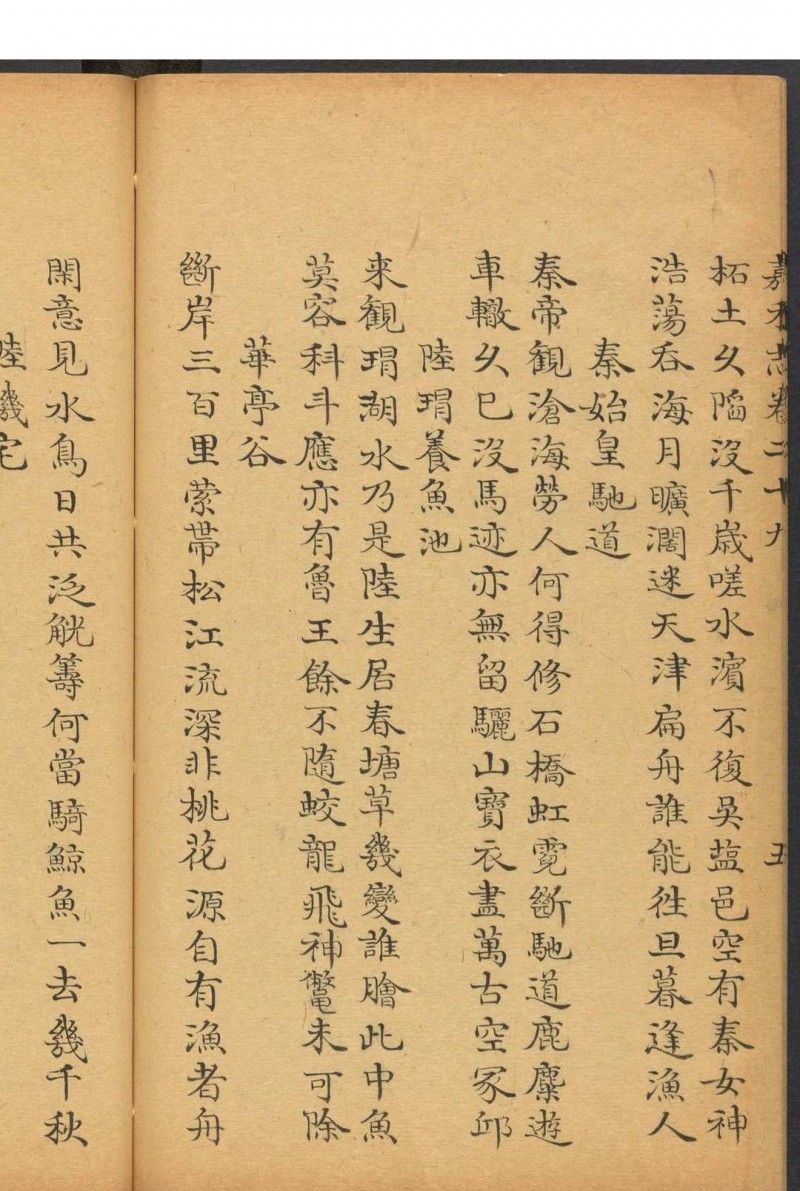 嘉禾志卷二十九 五
柘土久陷沒千歳嗟水濱不復吳塩邑空有秦女神
浩蕩吞海月曠濶迷天津扁舟誰能徃旦暮逢漁人
秦始皇馳道
秦帝觀滄海勞人何得修石橋虹霓斷馳道鹿麋遊
車轍久巳沒馬迹亦無留驪山寶衣盡萬古空冢邱
陸瑁養魚池
来觀瑁湖水乃是陸生居春塘草幾變誰膾此中魚
莫容科斗應亦有魯王餘不隨蛟龍飛神鼈未可除
華亭谷
斷岸三百里縈帶松江流深非桃花源自有漁者舟
閑意見水鳥日共泛觥籌何當騎鯨魚一去幾千秋
陸機宅